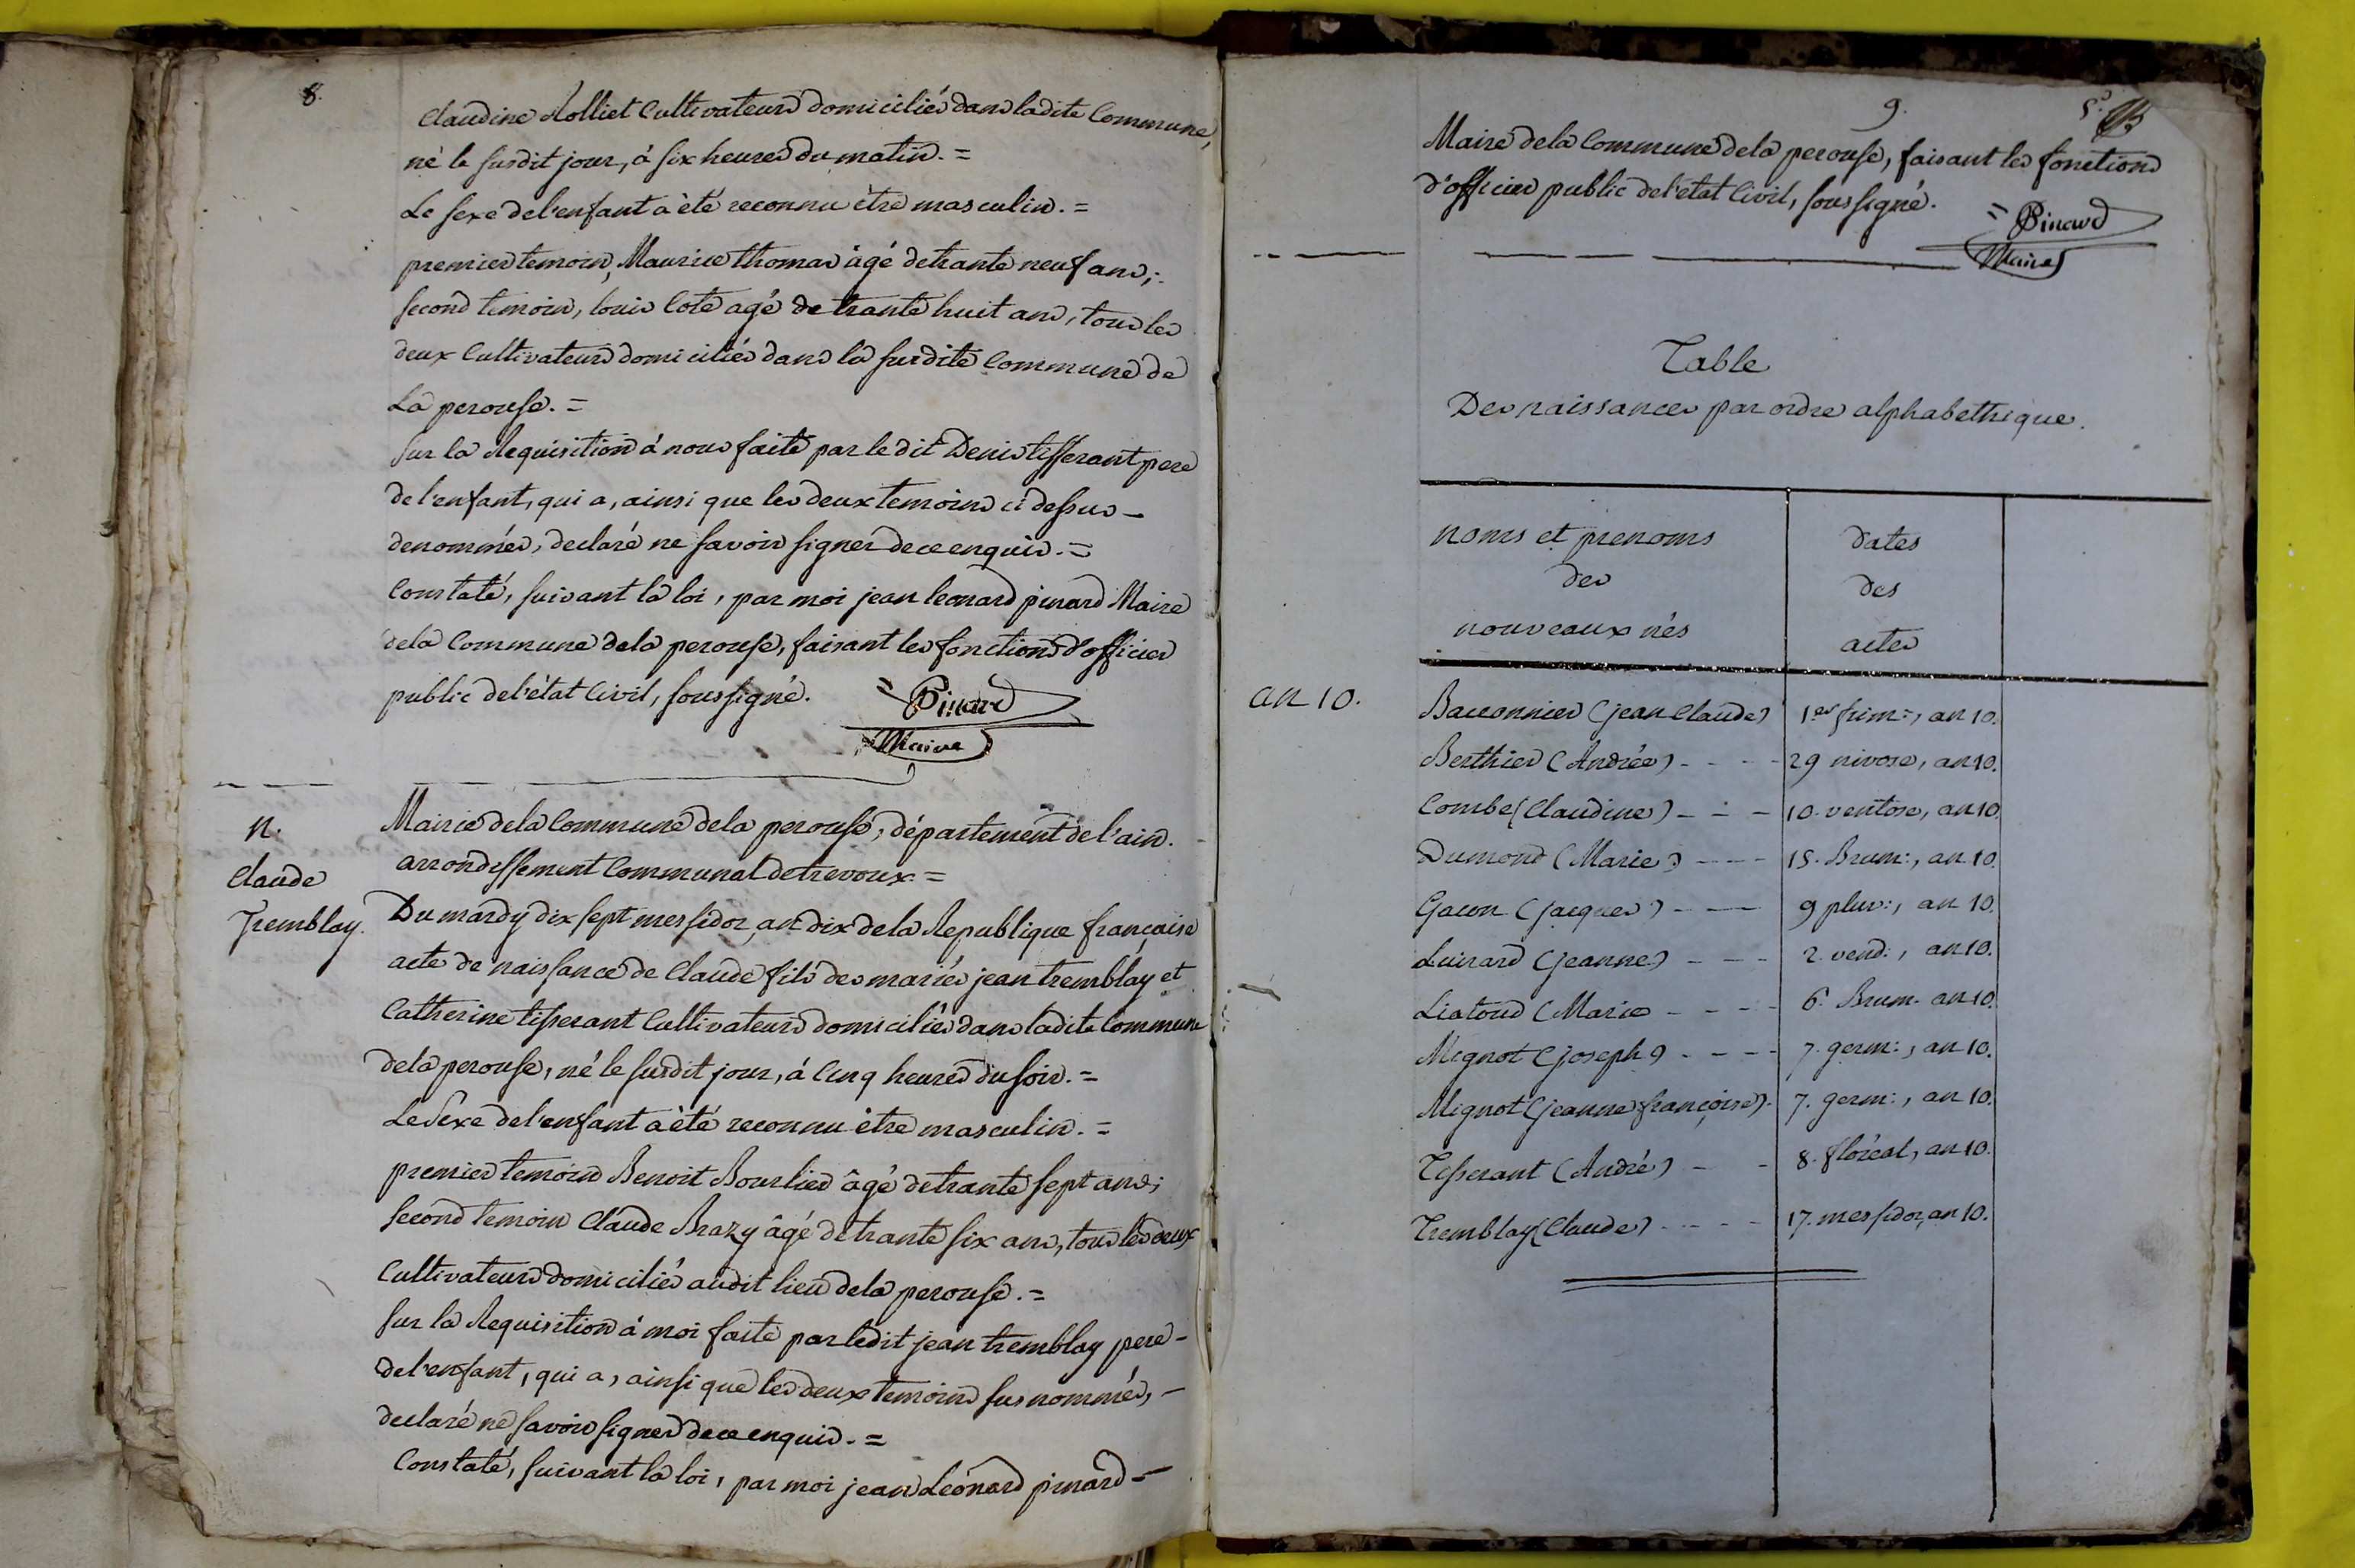 8.
Claudine Rolliet Cultivateurs domiciliés dans ladite Commune,
né le susdit jour, à six heures du matin. =
Le sexe de l'enfant a èté reconnu ètre masculin. =
premier temoin, Maurice thomas âgé de trante neuf ans;
second temoin, louis Cote agé de trante huit ans, tous les
deux Cultivateurs domiciliés dans la susdite Commune de
La perouse. =
Sur la Requisition à nous faite par le dit Denis tisserant pere
de l'enfant, qui a, ainsi que les deux temoins ci dessus -
denommés, declaré ne savoir signer de ce enquis. =
Constaté, suivant la loi, par moi jean leonard pinard Maire
dela Commune dela perouse, faisant les fonctions d'officier
public de l'état Civil, soussigné.
= Pinard
Maire
N.
Claude
Tremblay.
Mairie dela Commune dela perouse, département de l'ain.
arrondissement Communal de trevoux =
Du mardy dix sept messidor, an dix dela Republique française
acte de naissance de Claude fils des mariés jean tremblay et
Catherine tisserant Cultivateurs domiciliés dans ladite Commune
dela perouse, né le susdit jour, à Cinq heures du soir. =
Le Sexe de l'enfant a èté reconnu être masculin. =
premier temoin Benoit Bourlier âgé de trante sept ans;
second temoin Claude Brazy âgé de trante six ans, tous les deux
Cultivateurs domiciliés audit lieu dela perouse. =
Sur la Requisition à moi faite par ledit jean tremblay pere -
de l'enfant, qui a, ainsi que les deux temoins sus nommés, -
declaré ne savoir signer de ce enquis. =
Constaté, suivant la loi, par moi jean Léonard pinard =
9.
Maire dela Commune dela perouse, faisant les fonctions
d'officier public de l'état Civil, soussigné.
= Pinard
Maire
Table
Des naissances par ordre alphabethique.
noms et prenoms
des
nouveaux nés
dates
des
actes
an 10.
Bacconnier (jean Claude) 1er frim:, an 10.
Berthier (Andrée) - - - - 29 nivose, an 10.
Combe (Claudine) - - - 10. ventose, an 10.
Dumond (Marie) - - - - 15. Brum:, an 10.
Gacon (jacques) - - - 9 pluv:, an 10.
Luirard (jeanne) - - - 2. vend:, an 10.
Liatoud (Marie - - - - 6. Brum. an 10.
Mignot (joseph) - - - - 7. germ:, an 10.
Mignot (jeanne françoise). 7. germ:, an 10.
Tisserant (André) - - 8. floréal, an 10.
Tremblay (Claude) - - - - 17. messidor, an 10.